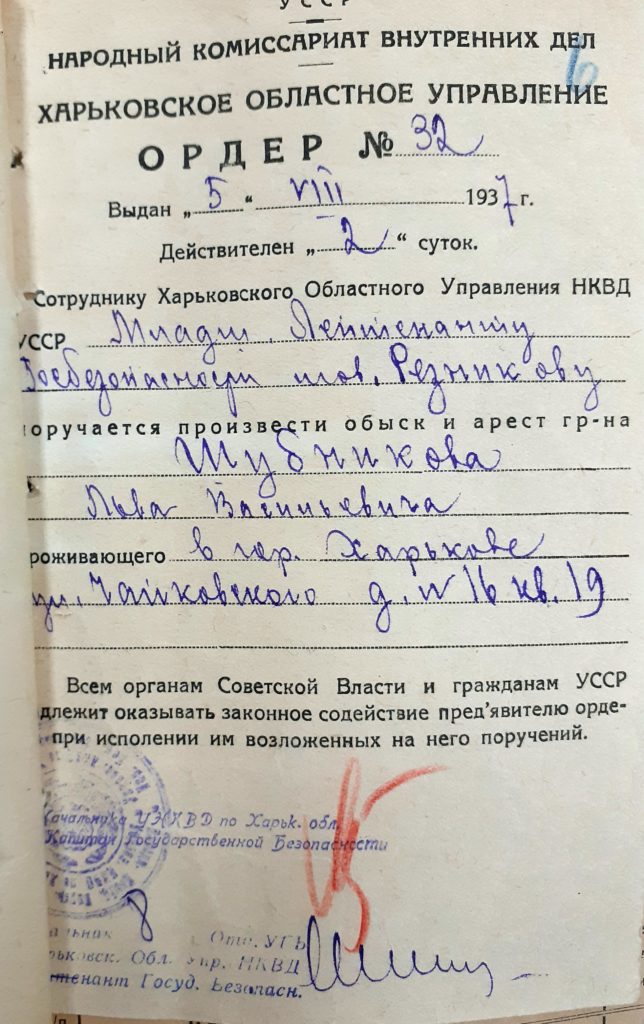 УССР
НАРОДНЫЙ КОМИССАРИАТ ВНУТРЕННИХ ДЕЛ
6
ХАРЬКОВСКОЕ ОБЛАСТНОЕ УПРАВЛЕНИЕ
ОРДЕР № 32
Выдан „ 5 “ VIII 1937 г.
Действителен „ 2 “ суток.
Сотруднику Харьковского Областного Управления НКВД
УССР Младш. Лейтенанту
Госбезопасности тов. Резникову
поручается произвести обыск и арест гр-на
Шубникова
Льва Васильевича
роживающего в гор. Харькове
ул. Чайковского д. № 16 кв. 19
Всем органам Советской Власти и гражданам УССР
длежит оказывать законное содействие пред'явителю орде-
при исполении им возложенных на него поручений.
Начальника УНКВД по Харьк. обл.
Капитан Государственной Безопасности
8
альник Отд. УГБ
рьковск. Обл. Упр. НКВД
тенант Госуд. Безопасн.